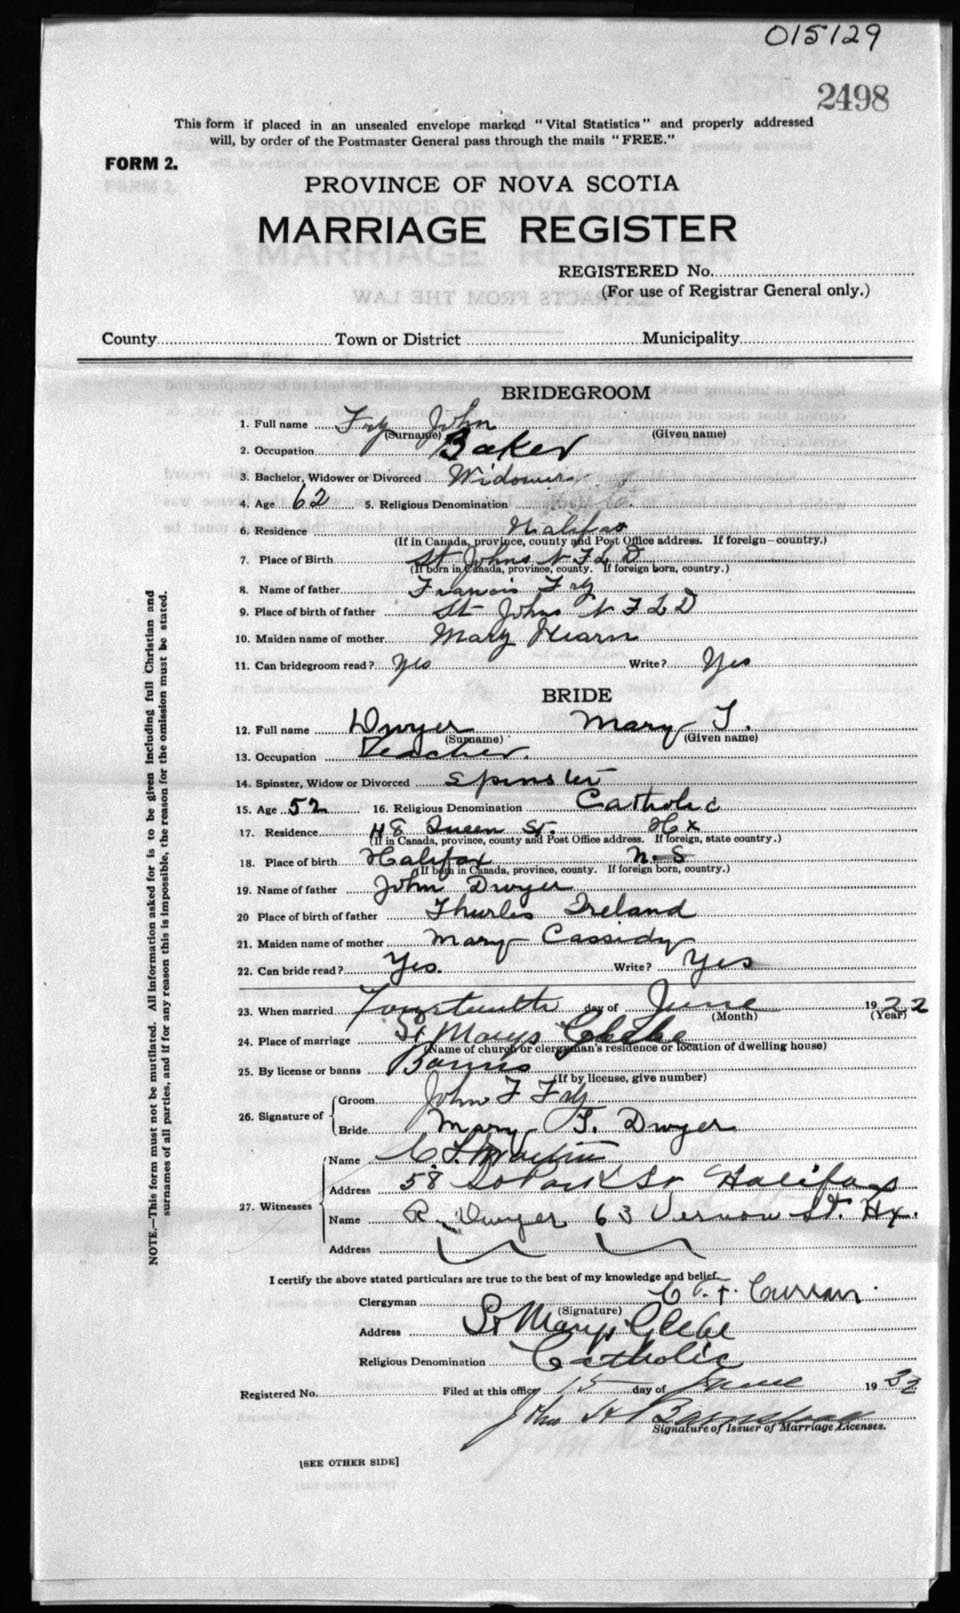 015129
2498
This form if placed in an unsealed envelope marked "Vital Statistics" and properly addressed
will, by order of the Postmaster General pass through the mails "FREE."
FORM 2.
PROVINCE OF NOVA SCOTIA
MARRIAGE REGISTER
REGISTERED No.
(For use of Registrar General only.)
County Town or District Municipality
BRIDEGROOM
1. Full name Fry John
(Surname) (Given name)
2. Occupation Baker
3. Bachelor, Widower or Divorced Widower
4. Age 62 5. Religious Denomination
6. Residence Halifax
(If in Canada, province, county and Post Office address. If foreign—country.)
7. Place of Birth St Johns NFLD
(If born in Canada, province, county. If foreign born, country.)
8. Name of father Francis Fry
9. Place of birth of father St Johns NFLD
10. Maiden name of mother Mary Hearn
11. Can bridegroom read? Yes Write? Yes
BRIDE
12. Full name Dwyer Mary T.
(Surname) (Given name)
13. Occupation Teacher.
14. Spinster, Widow or Divorced Spinster
15. Age 52 16. Religious Denomination Catholic
17. Residence 48 Queen St. Hx
(If in Canada, province, county and Post Office address. If foreign, state country.)
18. Place of birth Halifax N.S
(If born in Canada, province, county. If foreign born, country.)
19. Name of father John Dwyer
20 Place of birth of father Thurles Ireland
21. Maiden name of mother Mary Cassidy
22. Can bride read? Yes. Write? Yes
23. When married Fourteenth day of June 1922
(Month) (Year)
24. Place of marriage St Marys Glebe
(Name of church or clergyman's residence or location of dwelling house)
25. By license or banns Banns
(If by license, give number)
26. Signature of Groom John F Fry
Bride Mary T. Dwyer
27. Witnesses Name C. F. Martin
Address 58 So Park St Halifax
Name R. Dwyer 63 Vernon St. Hx.
Address
I certify the above stated particulars are true to the best of my knowledge and belief.
Clergyman Curran.
(Signature)
Address St Marys Glebe
Religious Denomination Catholic
Registered No. Filed at this office 15 day of June 19 22
John
Signature of Issuer of Marriage Licenses.
[SEE OTHER SIDE]
NOTE.—This form must not be mutilated. All information asked for is to be given including full Christian and
surnames of all parties, and if for any reason this is impossible, the reason for the omission must be stated.